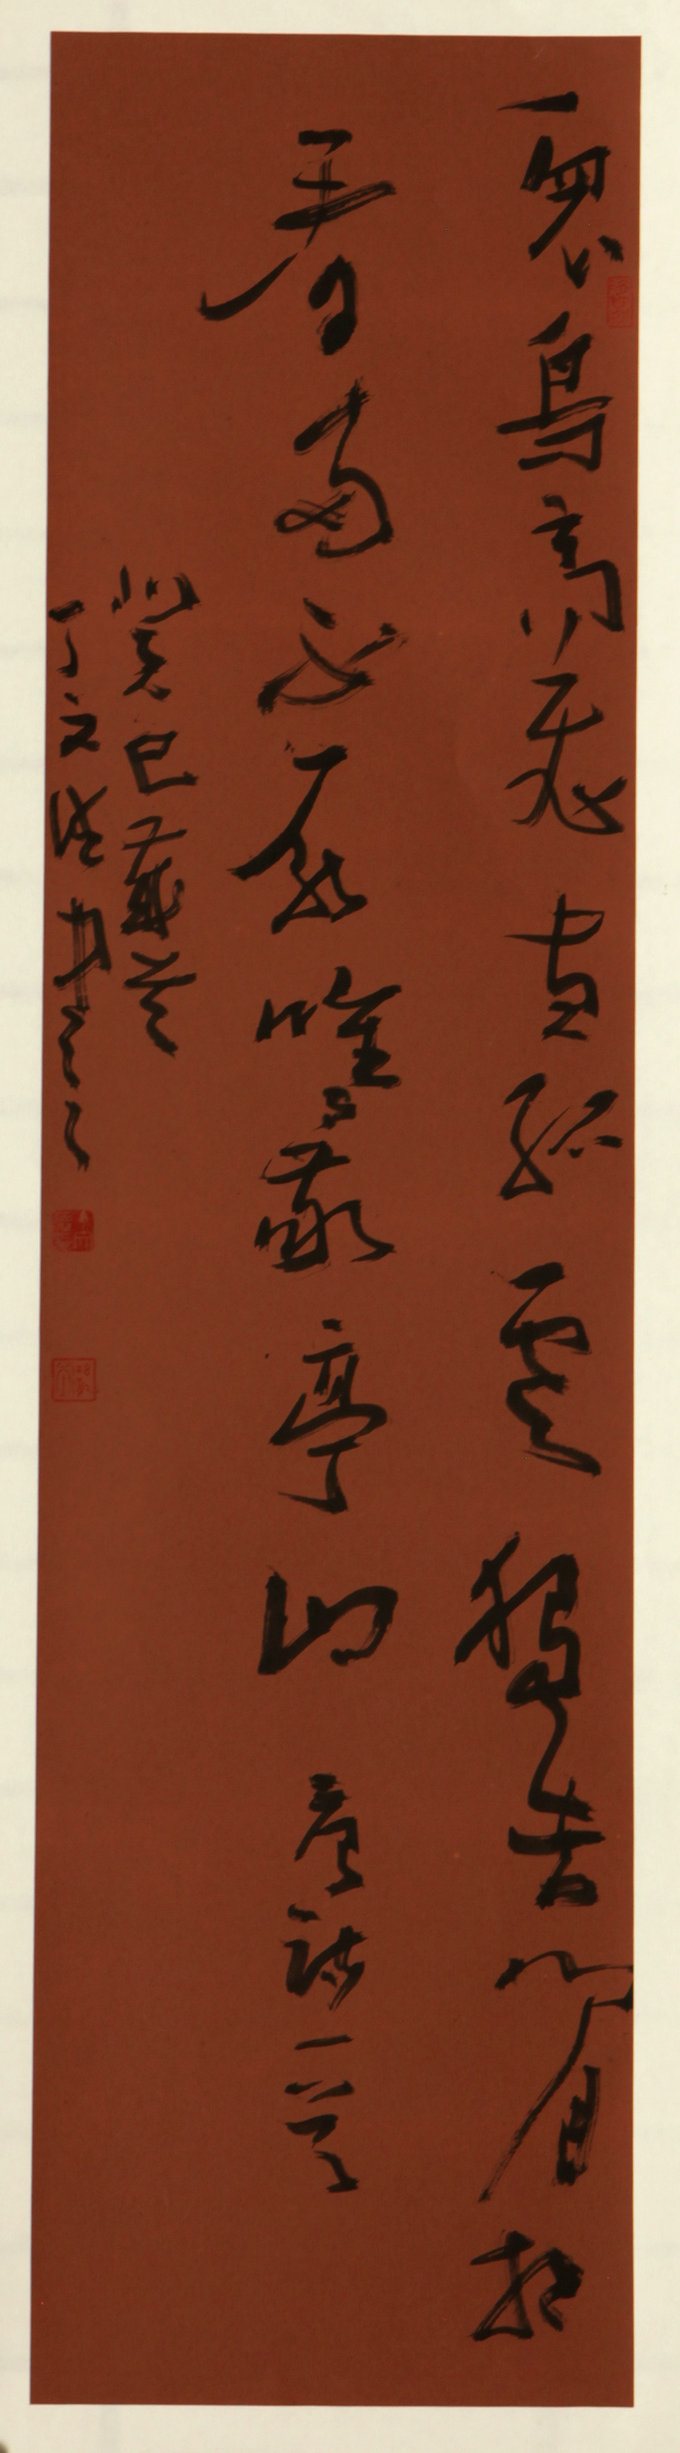 眾鳥高飛盡孤雲獨去閒相
看兩不厭唯敬亭山唐詩一首
癸巳歲
丁文書